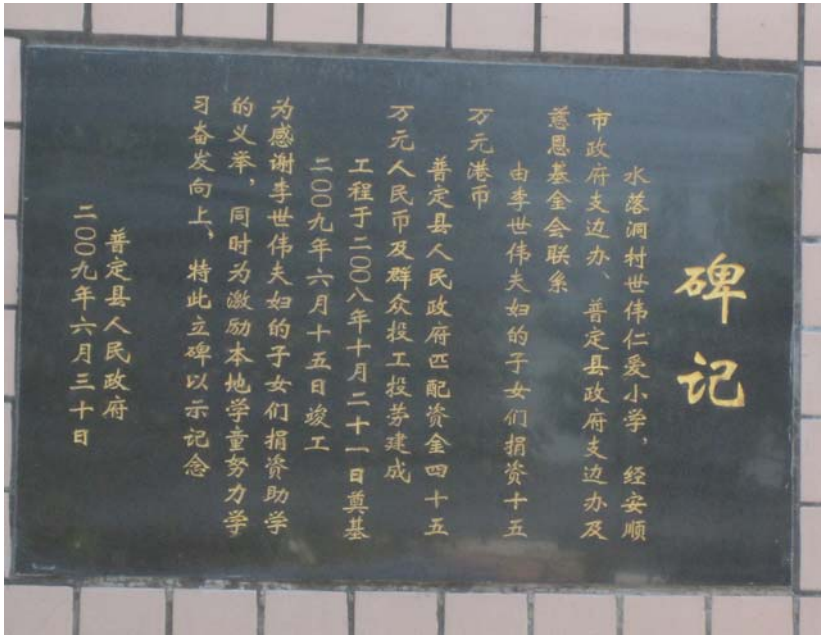 碑记
水落洞村世伟仁爱小学，经安顺
市政府支边办、普定县政府支边办及
慈恩基金会联系
由李世伟夫妇的子女们捐资十五
万元港币
普定县人民政府匹配资金四十五
万元人民币及群众投工投劳建成
工程于二〇〇八年十月二十一日奠基
二〇〇九年六月十五日竣工
为感谢李世伟夫妇的子女们捐资助学
的义举，同时为激励本地学童努力学
习奋发向上，特此立碑以示记念
普定县人民政府
二〇〇九年六月三十日